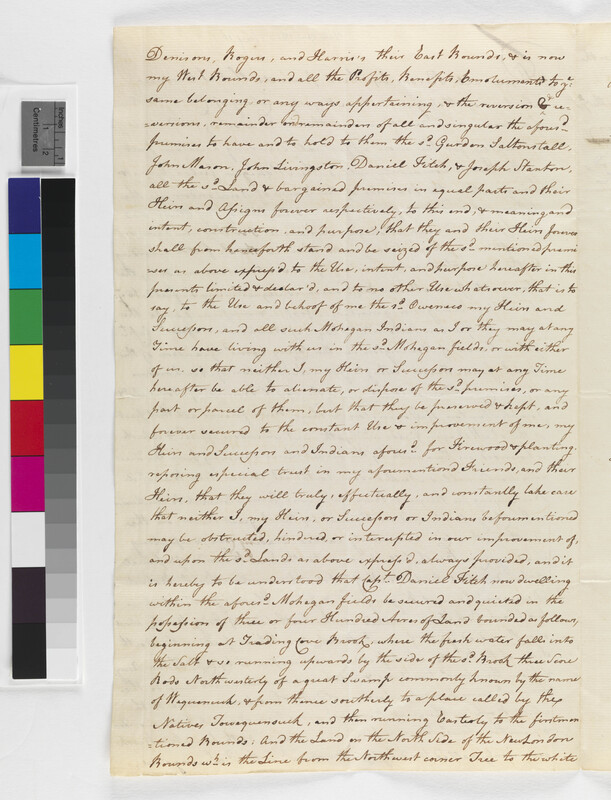 Inches
Centimetres
1
2
Denisons, Rogers, and Harris's their East Bounds, & is now
my West Bounds, and all the Profits, Benefits, Emoluments to ye
same belonging or any ways appertaining, & the reversion & re-
versions, remainder or remainders of all and singular the aforesd
premises to have and to hold to them the sd Gurdon Saltonstall,
John Mason, John Livingston, Daniel Fitch, & Joseph Stanton,
all the sd Land & bargained premises in equal parts and their
Heirs and Assigns forever respectively, to this end, & meaning and
intent, construction, and purpose, that they and their Heirs forever
shall from henceforth stand and be seized of the sd mentioned premi
ses as above express'd to the Use, intent, and purpose hereafter in this
presents limited & declar'd, and to no other Use whatsoever, that is to
say, to the Use and behoof of me the sd Oweneco my Heirs and
Successors, and all such Mohegan Indians as I or they may at any
Time have living with us in the sd Mohegan fields, or with either
of us, so that neither I, my Heirs or Successors may at any Time
hereafter be able to alienate, or dispose of the sd premises, or any
part or parcel of them, but that they be preserved & kept, and
forever secured to the constant Use & improvement of me, my
Heirs and Successors and Indians aforesd for Firewood & planting,
reposing especial trust in my aforementioned Friends, and their
Heirs, that they will truly, effectually, and constantly take care
that neither I, my Heirs, or Successors or Indians beforementioned
may be obstructed, hindred, or intercepted in our improvement of,
and upon the sd Lands as above express'd, always provided, and it
is hereby to be understood that Capt. Daniel Fitch now dwelling
within the aforesd Mohegan fields be secured and quieted in the
possession of three or four Hundred Acres of Land bounded as follows,
beginning at Trading Cove Brook, where the fresh water fall into
the Salt & so running upwards by the side of the sd Brook three Score
Rods Northwesterly of a great Swamp commonly known by the name
of Weguenuck, & from thence southerly to a place called by the
Natives Towaguensuck, and then running Easterly to the firstmen
=tioned Bounds; And the Land on the North Side of the New London
Bounds wh is the Line from the Northwest corner Tree to the white